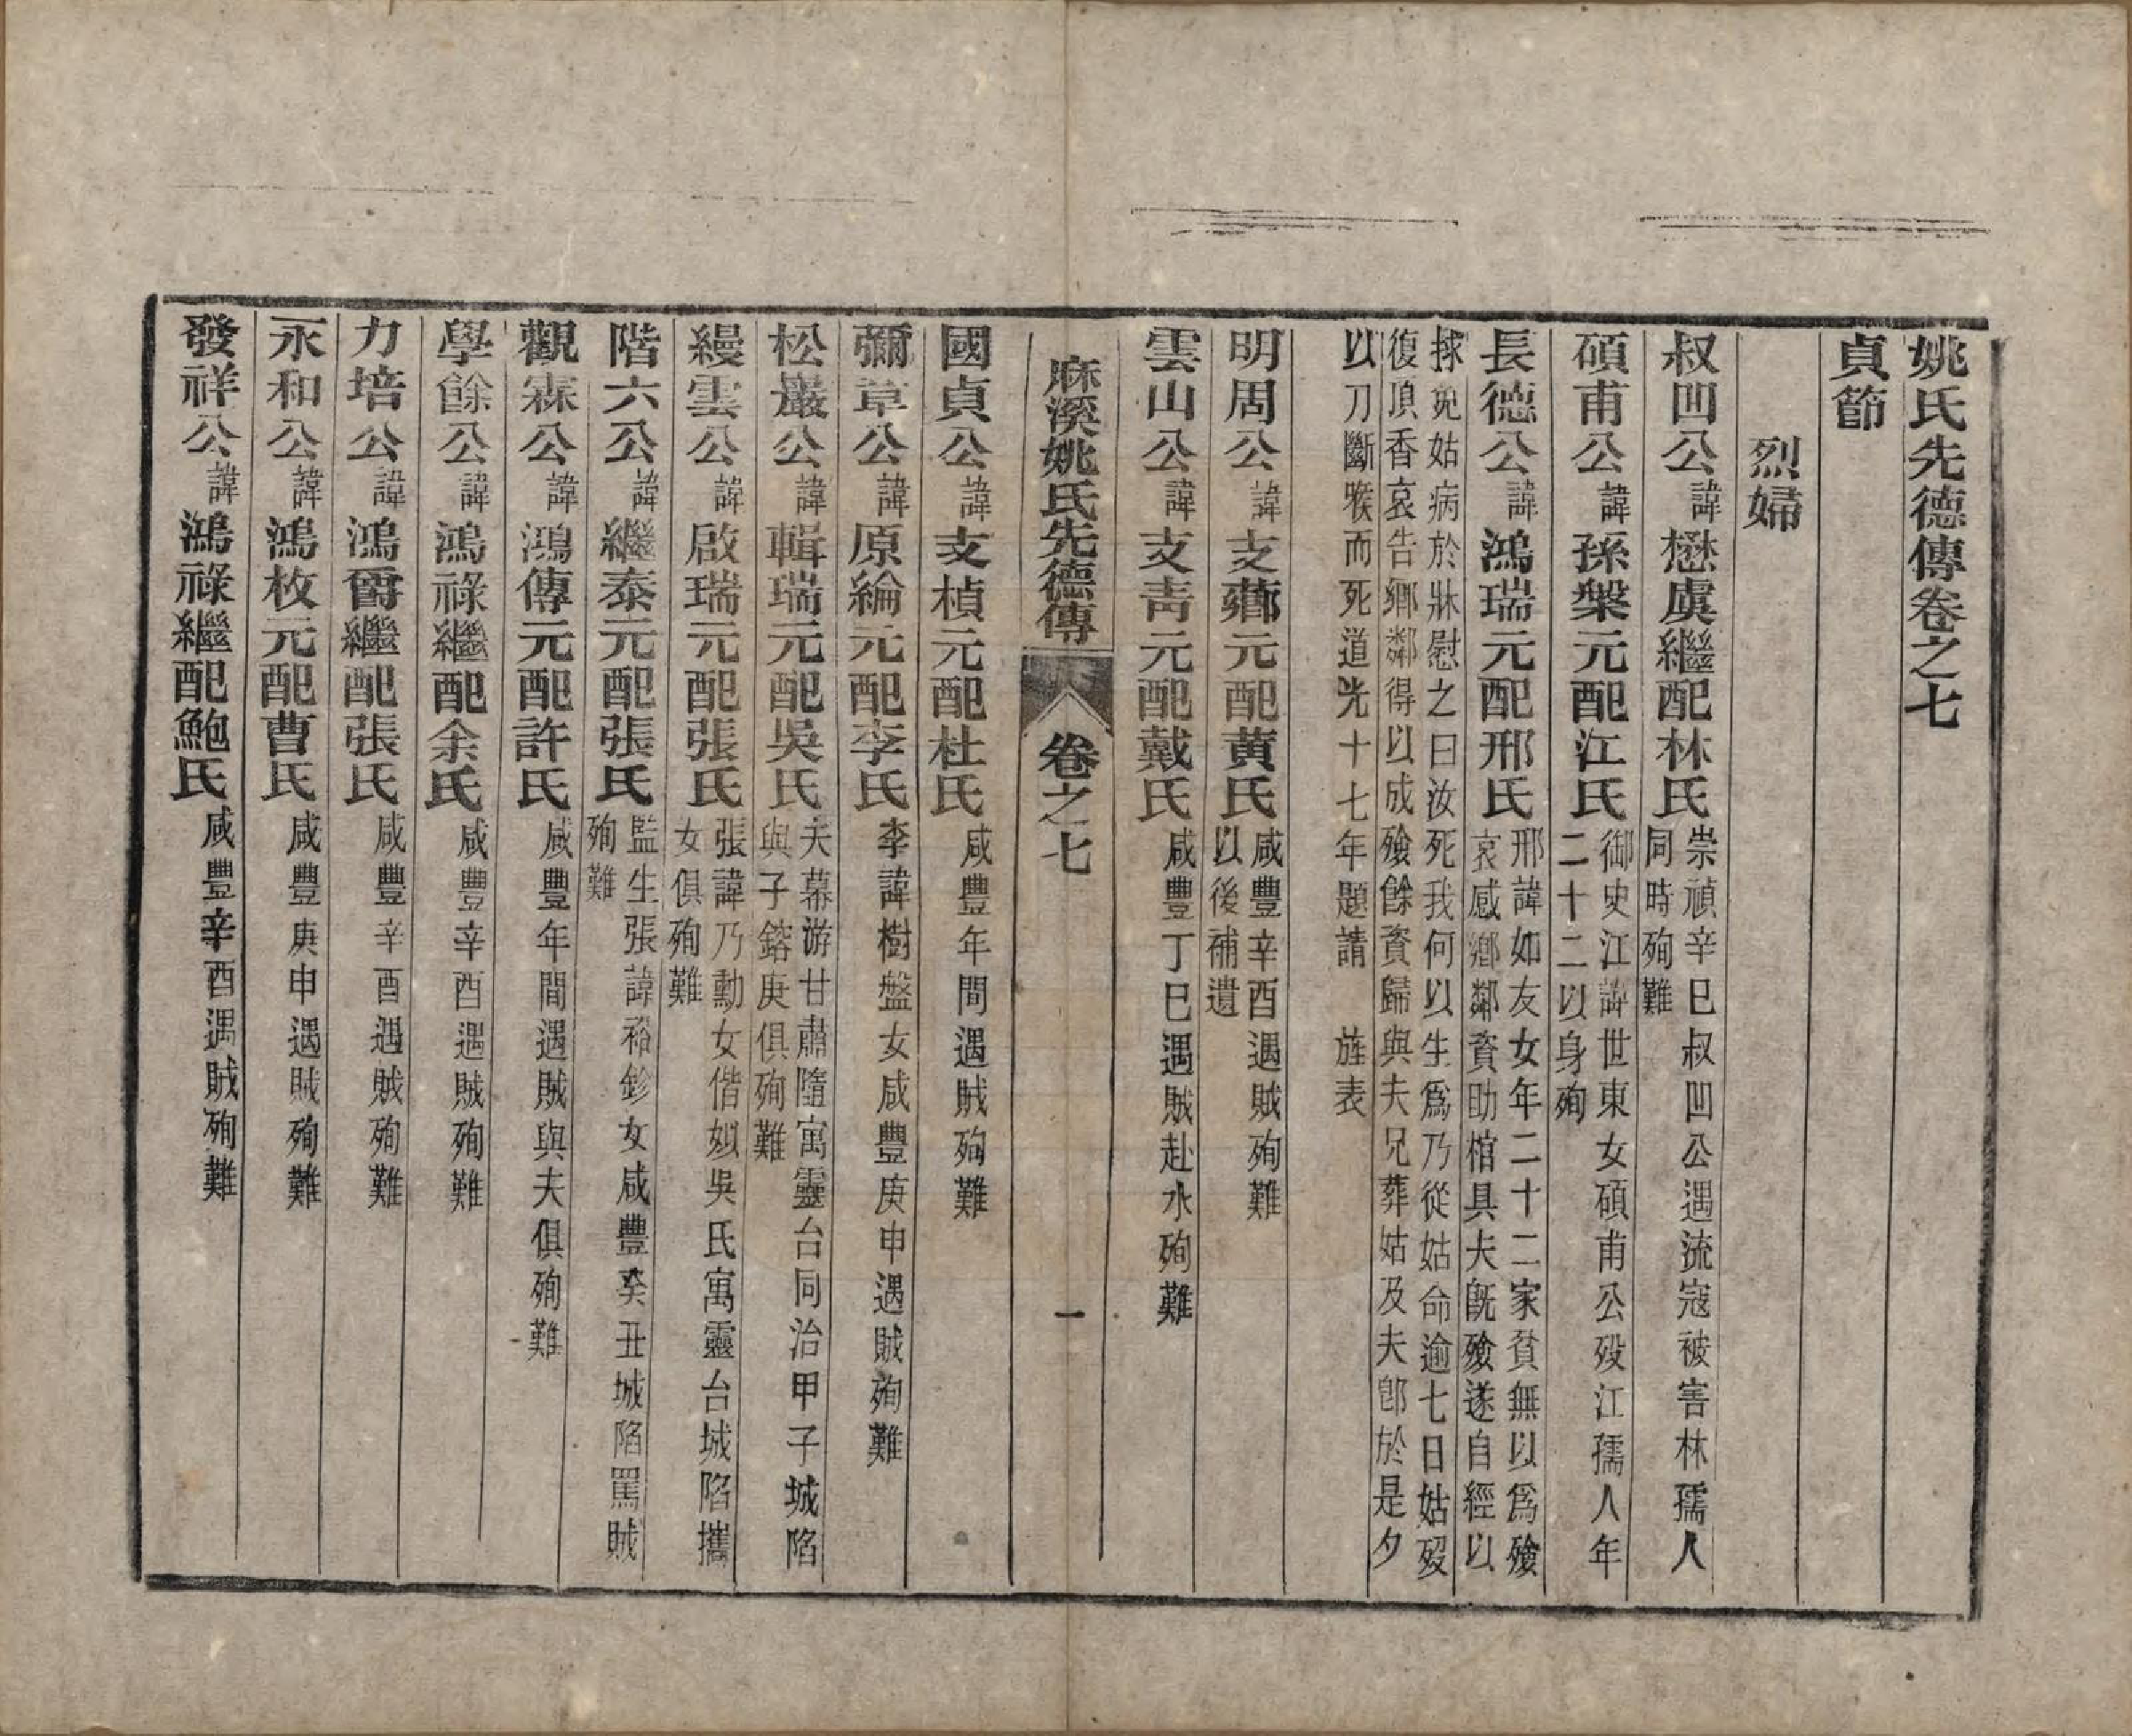 姚氏先德傳卷之七
貞節
烈婦
叔凹公諱懋虞繼配林氏崇禎辛巳叔凹公遇流寇被害林孺人
同時殉難
碩甫公諱孫槃元配江氏御史江諱世東女碩甫公歿江孺人年
二十二以身殉
長德公諱鴻瑞元配邢氏邢諱如友女年二十二家貧無以爲殮
哀感鄉鄰資助棺具夫旣殮遂自經以
捄免姑病於牀慰之曰汝死我何以生爲乃從姑命逾七日姑歿
復頂香哀告鄉鄰得以成殮餘資歸與夫兄葬姑及夫卽於是夕
以刀斷喉而死道光十七年題請 旌表
明周公諱支薌元配黄氏咸豐辛酉遇賊殉難
以後補遺
雲山公諱支靑元配戴氏咸豐丁巳遇賊赴水殉難
麻溪姚氏先德傳 卷之七 一
國貞公諱支楨元配杜氏咸豐年間遇賊殉難
彌章公諱原綸元配李氏李諱樹盤女咸豐庚申遇賊殉難
松巖公諱輯瑞元配吳氏夫幕游甘肅隨寓靈台同治甲子城陷
與子鎔庚俱殉難
縵雲公諱啟瑞元配張氏張諱乃勳女偕姒吳氏寓靈台城陷攜
女俱殉難
階六公諱繼泰元配張氏監生張諱裕鉁女咸豐癸丑城陷罵賊
殉難
觀霖公諱鴻傳元配許氏咸豐年間遇賊與夫俱殉難
學餘公諱鴻祿繼配余氏咸豐辛酉遇賊殉難
力培公諱鴻爵繼配張氏咸豐辛酉遇賊殉難
永和公諱鴻枚元配曹氏咸豐庚申遇賊殉難
發祥公諱鴻祿繼配鮑氏咸豐辛酉遇賊殉難